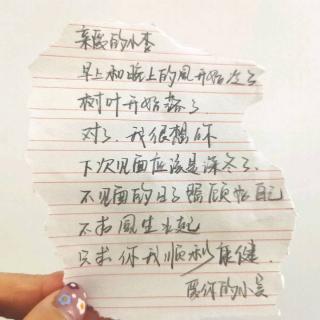 亲爱的小李
早上和晚上的風开始凉了
树叶开始落了
对了,我很想你
下次见面应该是深冬了.
不见面的日子照顾好自己
不求風生水起
只求你我顺利康健.
爱你的小吴